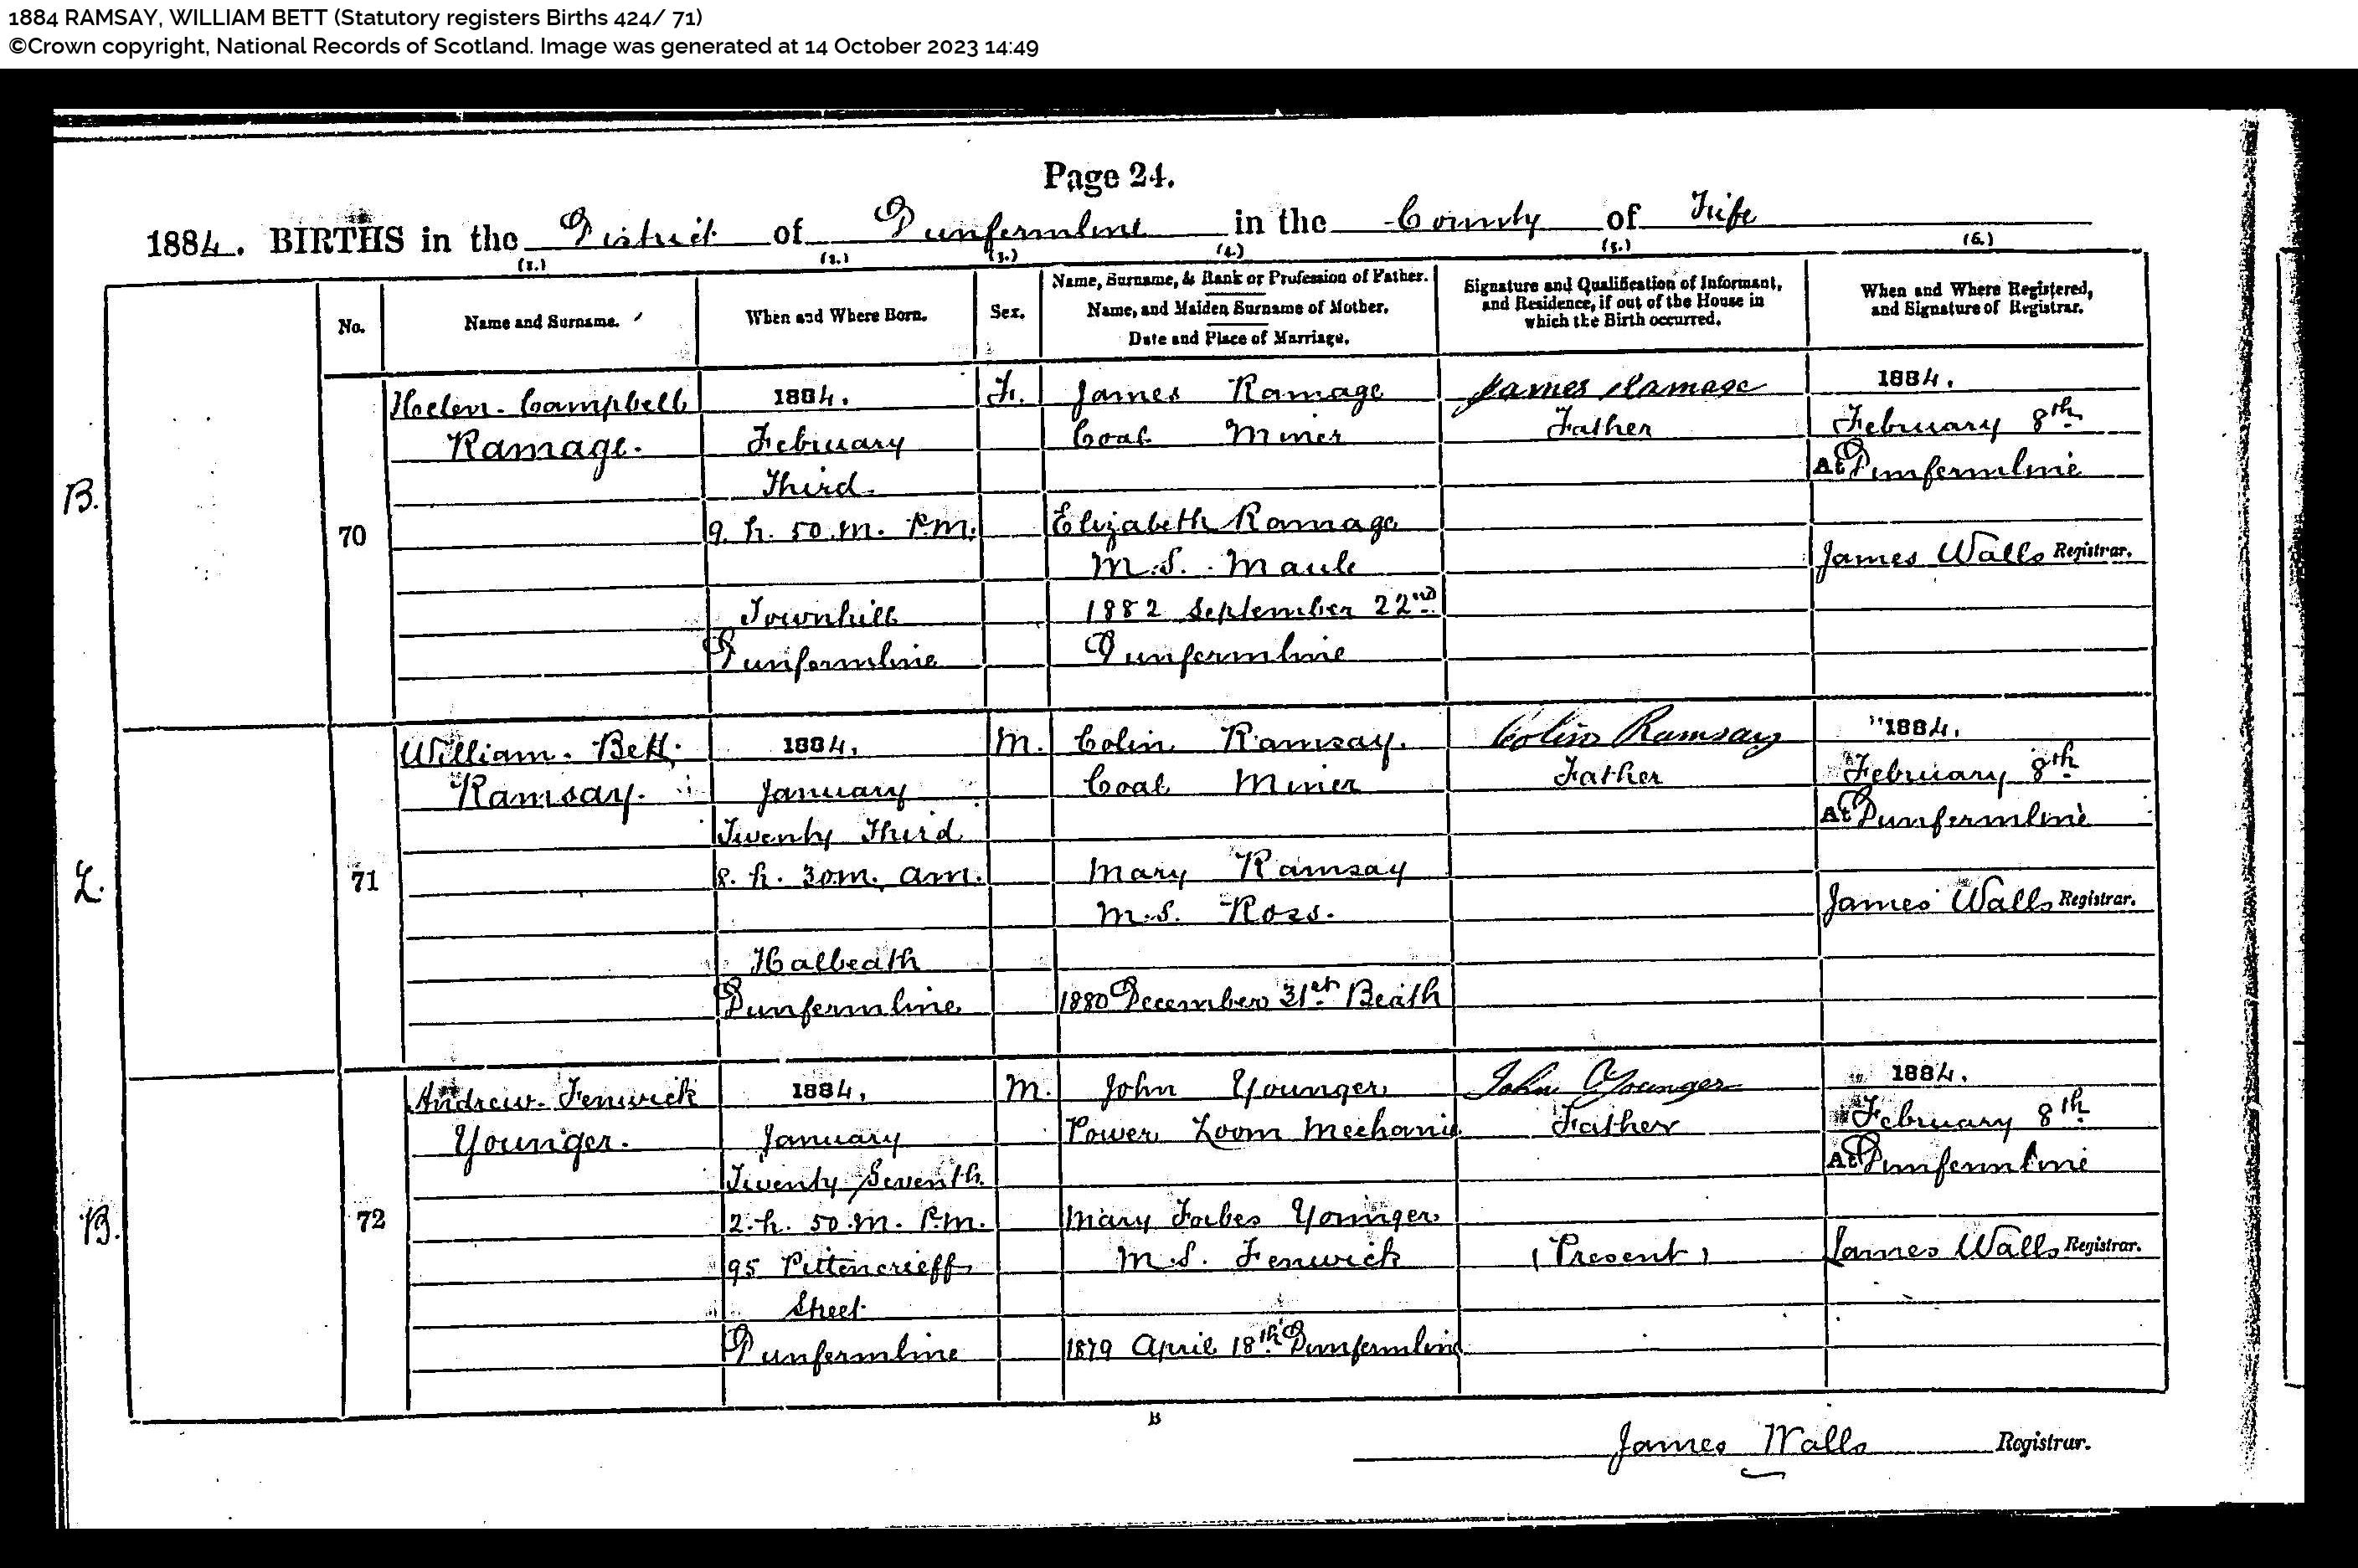 1884 RAMSAY, WILLIAM BETT (Statutory registers Births 424/ 71)
©Crown copyright, National Records of Scotland. Image was generated at 14 October 2023 14:49
Page 24.
1884. BIRTHS in the District of Dunfermline in the County of Fife
(1.) (2.) (3.) (4.) (5.) (6.)
No.
Name and Surname.
When and Where Born.
Sex.
Name, Surname, & Rank or Profession of Father.
Name, and Maiden Surname of Mother.
Date and Place of Marriage.
Signature and Qualification of Informant,
and Residence, if out of the House in
which the Birth occurred.
When and Where Registered,
and Signature of Registrar.
B.
70
Helen Campbell
Ramage.
1884.
February
Third
9. h. 50. m. P.M.
Townhill
Dunfermline
F.
James Ramage
Coal Miner
Elizabeth Ramage
M.S. Maule
1882 September 22nd
Dunfermline
James Ramage
Father
1884.
February 8th
At Dunfermline
James Walls Registrar.
L.
71
William Bett
Ramsay.
1884.
January
Twenty Third
8. h. 30m. am.
Halbeath
Dunfermline
M.
Colin Ramsay.
Coal Miner
Mary Ramsay
M.S. Ross.
1880 December 31st Beath
Colin Ramsay
Father
1884.
February 8th
At Dunfermline
James Walls Registrar.
B.
72
Andrew Fenwick
Younger.
1884.
January
Twenty Seventh
2. h. 50. m. P.m.
95 Pittencrieff
Street
Dunfermline
M.
John Younger
Power Loom Mechanic
Mary Forbes Younger
M.S. Fenwick
1879 April 18th Dunfermline
John Younger
Father
(Present)
1884.
February 8th
At Dunfermline
James Walls Registrar.
B
James Walls Registrar.